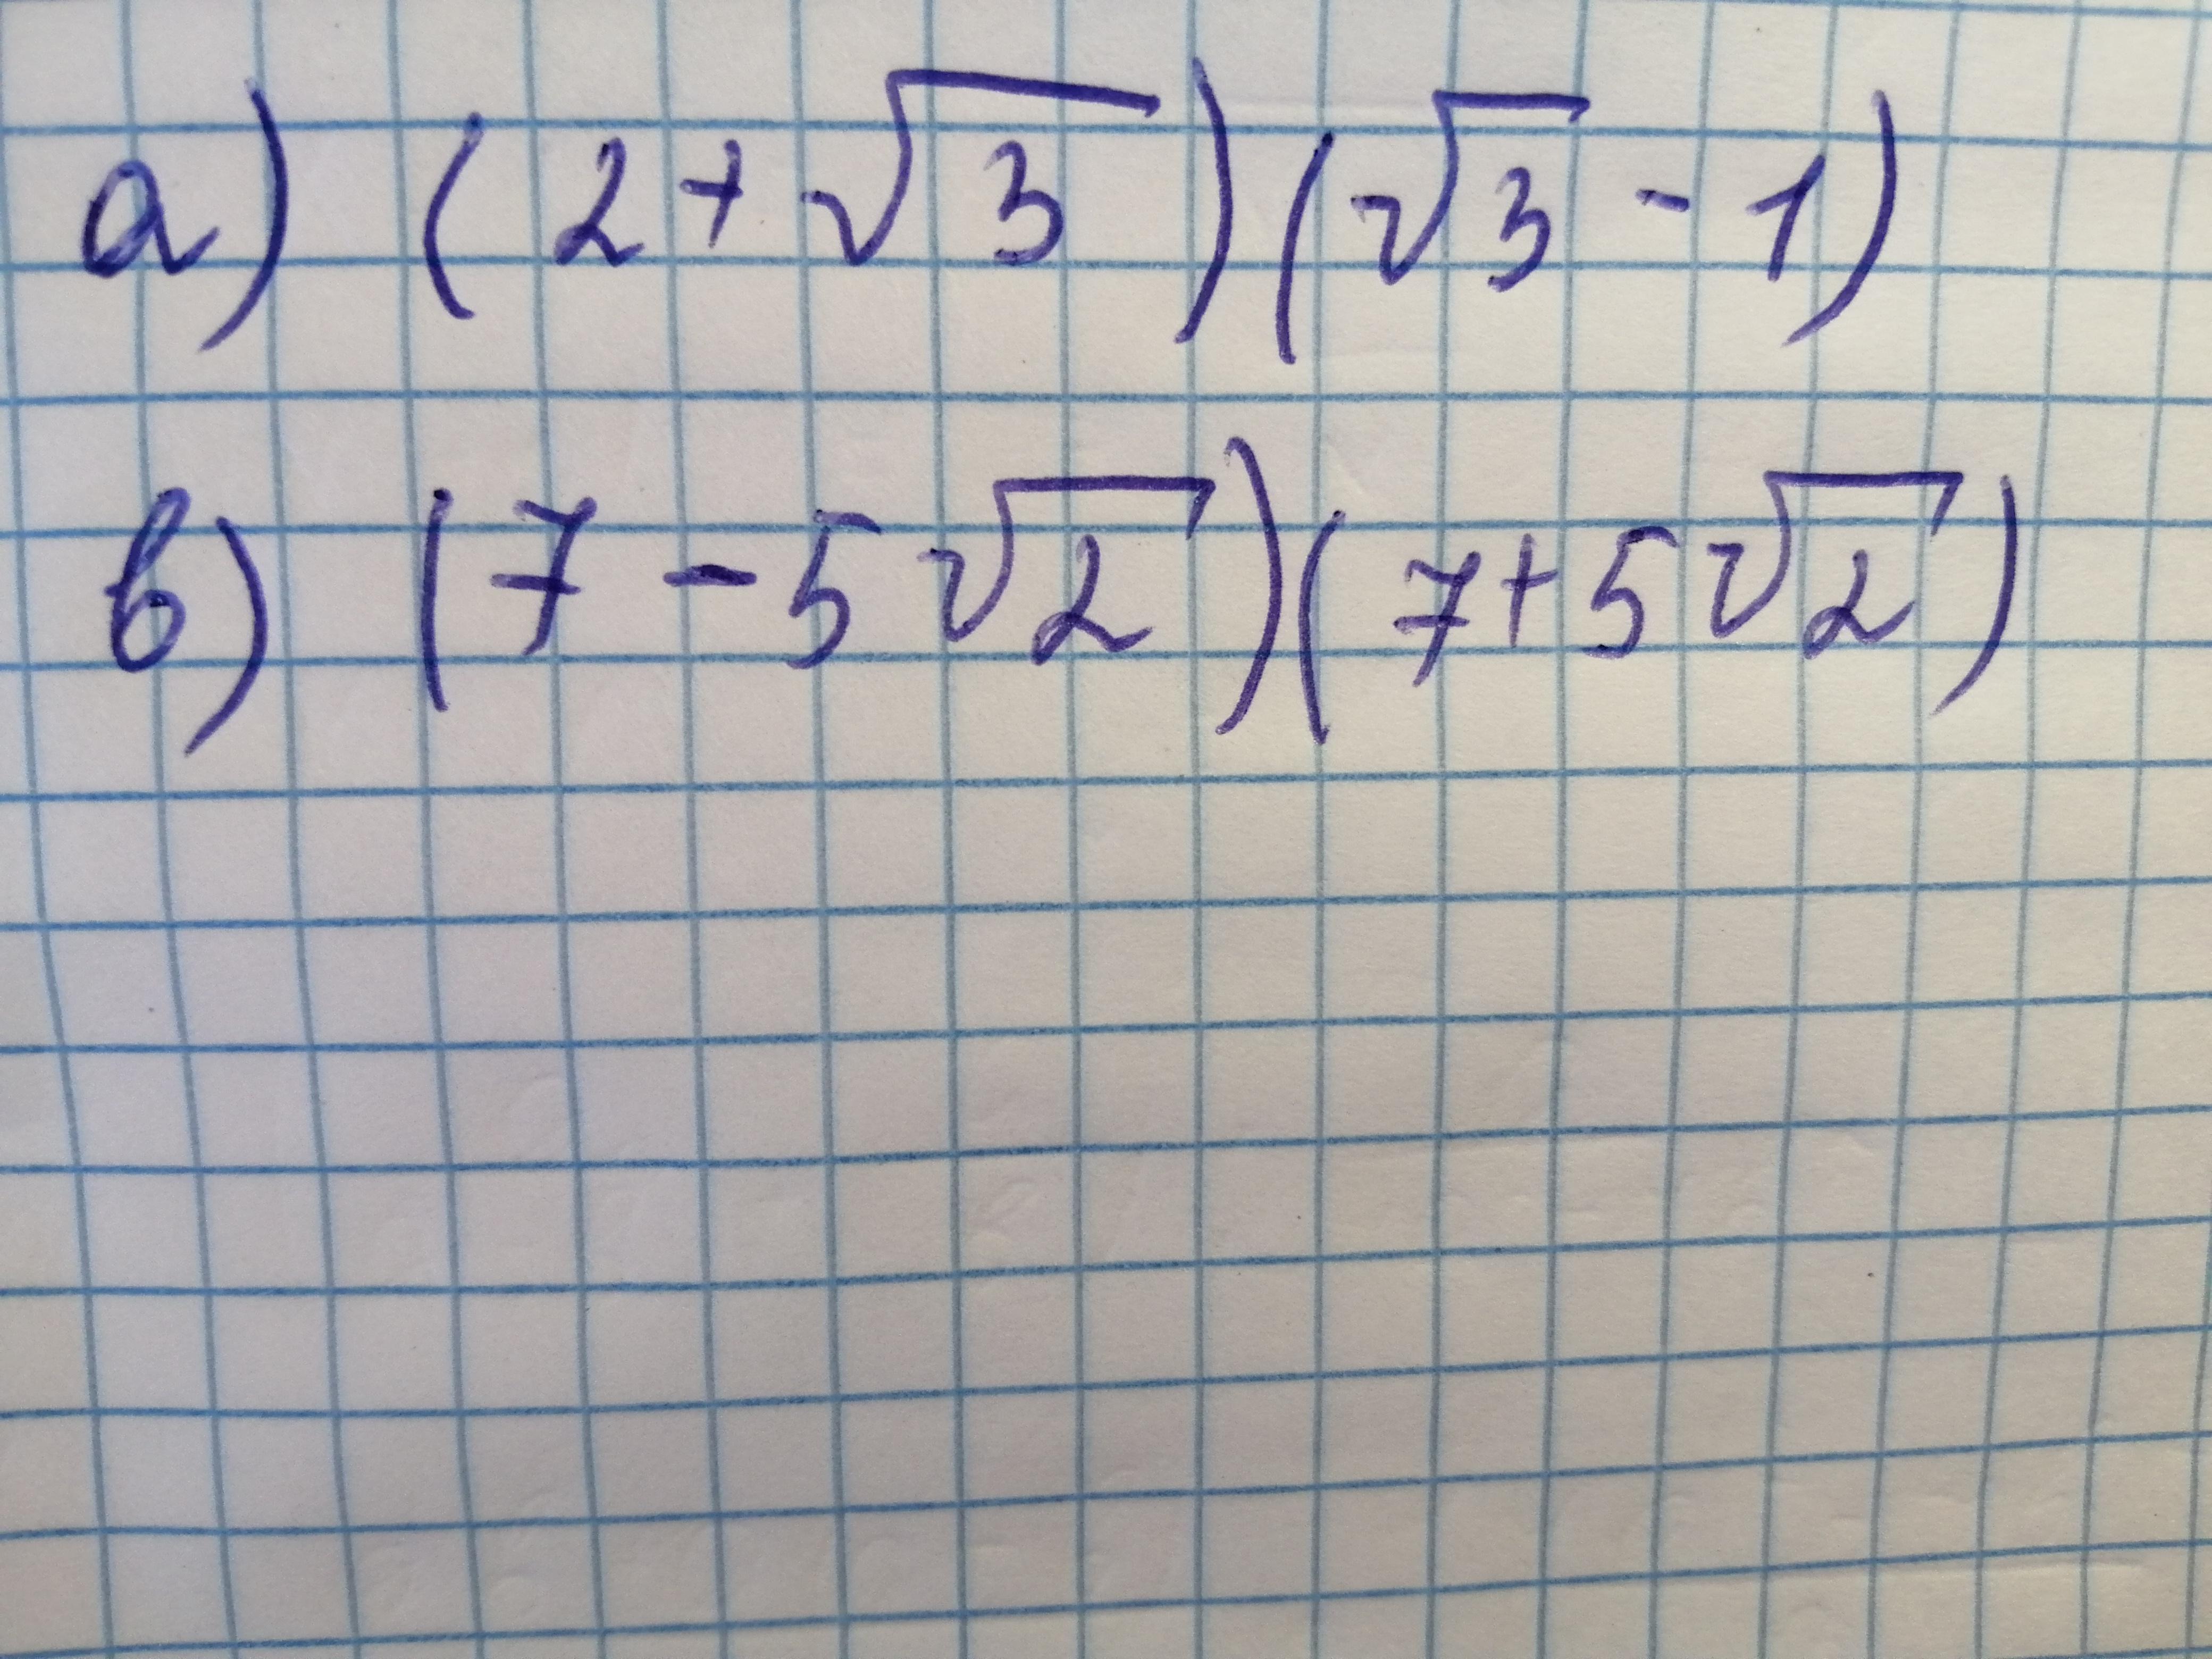 а) (2+√3)(√3-1)
в) (7-5√2)(7+5√2)